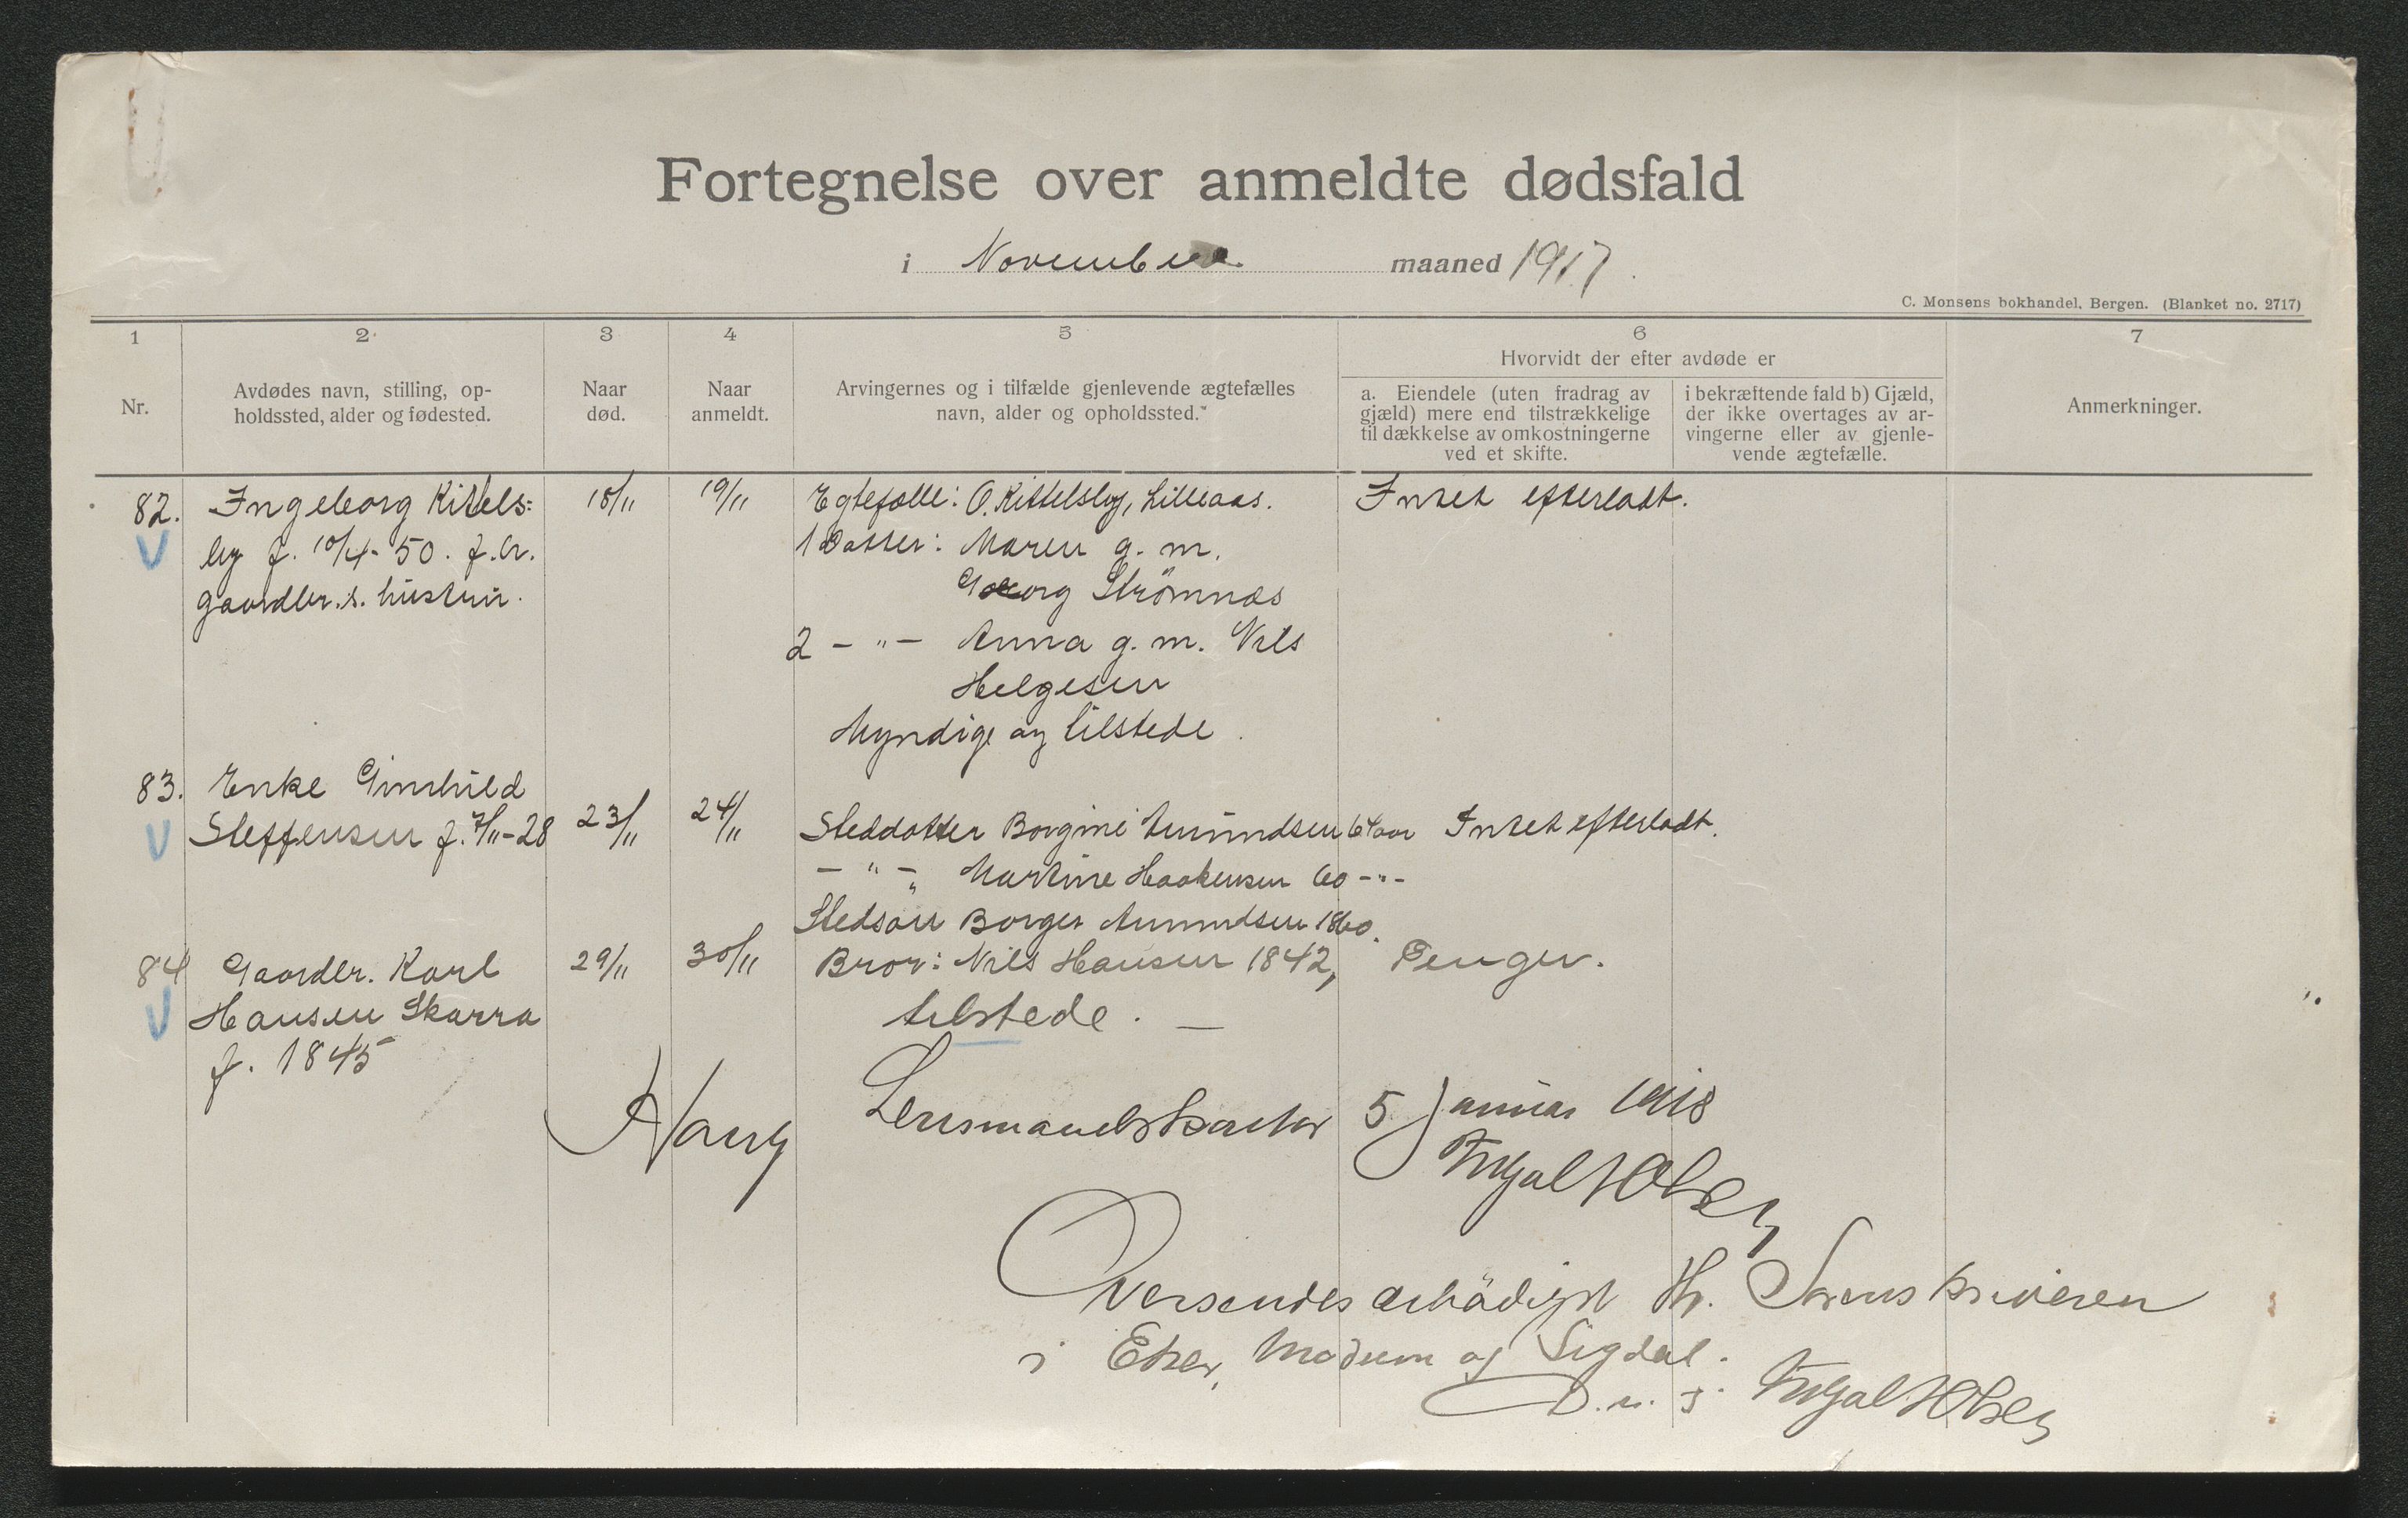 Fortegnelse over anmeldte dødsfald
i November maaned 1917.
C. Monsens bokhandel, Bergen. (Blanket no. 2717)
1
Nr.
2
Avdødes navn, stilling, op-
holdssted, alder og fødested.
3
Naar
død.
4
Naar
anmeldt.
5
Arvingernes og i tilfælde gjenlevende ægtefælles
navn, alder og opholdssted.
6
Hvorvidt der efter avdøde er
a. Eiendele (uten fradrag av
gjæld) mere end tilstrækkelige
til dækkelse av omkostningerne
ved et skifte.
i bekræftende fald b) Gjæld,
der ikke overtages av ar-
vingerne eller av gjenle-
vende ægtefælle.
7
Anmerkninger.
82. Ingeborg Kittels= 18/11 19/11 Egtefælle: O. Kittelsby, Lilleaas. Intet efterladt.
by f. 10/4-50. f.lr. 1 Datter: Maren g. m.
gaardbr.s. hustru. Georg Strömnæs
2 - " - Anna g. m. Nils
Helgesen
Myndige og tilstede.
83. Enke Gunhild
Steffensen f. 7/11-28 23/11 24/11 Steddatter Borgine Amundsen 64 aar Intet efterladt.
- " - Martine Haakensen 60 - " -
Stedsøn Borger Amundsen 1860.
84 Gaardbr. Karl 29/11 30/11 Bror: Nils Hansen 1842, Penger.
Hansen Skarra tilstede. -
f. 1845
Haug Lensmandskontor 5 Januar 1918
Oversendes ærbödigst Hr. Sorenskriveren
i Eker, Modum og Sigdal.
D. u. s.